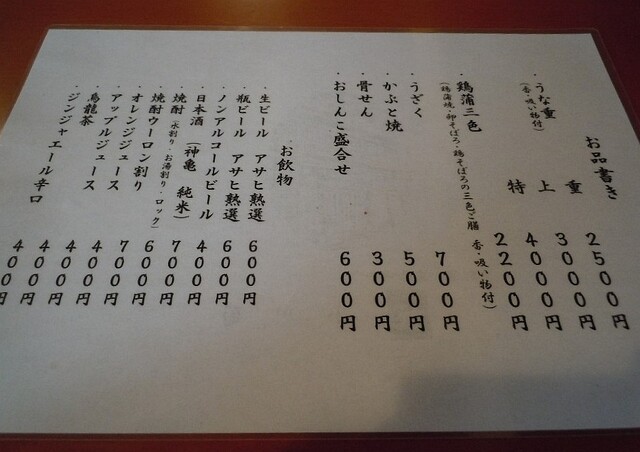 お品書き
・うな重
(香・吸い物付)
重 2500円
上 3000円
特 4000円
・鶏蒲三色 2200円
(鶏蒲焼・卵そぼろ・鶏そぼろの三色ご膳 香・吸い物付)
・うざく 700円
・かぶと焼 500円
・骨せん 300円
・おしんこ盛合せ 600円
お飲物
・生ビール アサヒ熟選 600円
・瓶ビール アサヒ熟選 600円
・ノンアルコールビール 400円
・日本酒 (神亀 純米) 700円
・焼酎 (水割り・お湯割り・ロック) 600円
・焼酎ウーロン割り 700円
・オレンジジュース 400円
・アップルジュース 400円
・烏龍茶 400円
・ジンジャエール辛口 400円